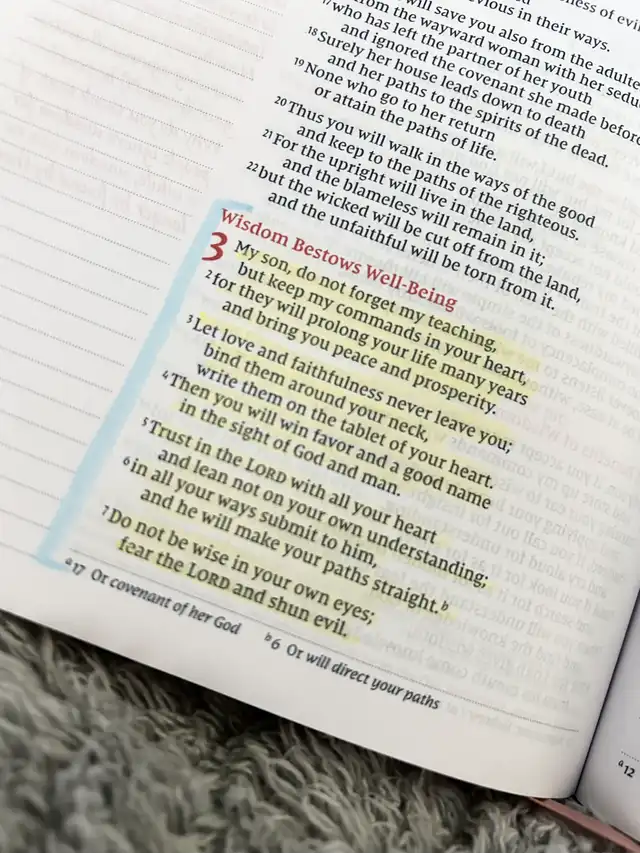 will save you also from the adulte
from the wayward woman with her sedu
17 who has left the partner of her youth
and ignored the covenant she made before
18 Surely her house leads down to death
and her paths to the spirits of the dead.
19 None who go to her return
or attain the paths of life.
20 Thus you will walk in the ways of the good
and keep to the paths of the righteous.
21 For the upright will live in the land,
and the blameless will remain in it;
22 but the wicked will be cut off from the land,
and the unfaithful will be torn from it.
Wisdom Bestows Well-Being
3 My son, do not forget my teaching,
but keep my commands in your heart,
2 for they will prolong your life many years
and bring you peace and prosperity.
3 Let love and faithfulness never leave you;
bind them around your neck,
write them on the tablet of your heart.
4 Then you will win favor and a good name
in the sight of God and man.
5 Trust in the LORD with all your heart
and lean not on your own understanding;
6 in all your ways submit to him,
and he will make your paths straight.b
7 Do not be wise in your own eyes;
fear the LORD and shun evil.
a17 Or covenant of her God b6 Or will direct your paths
a12